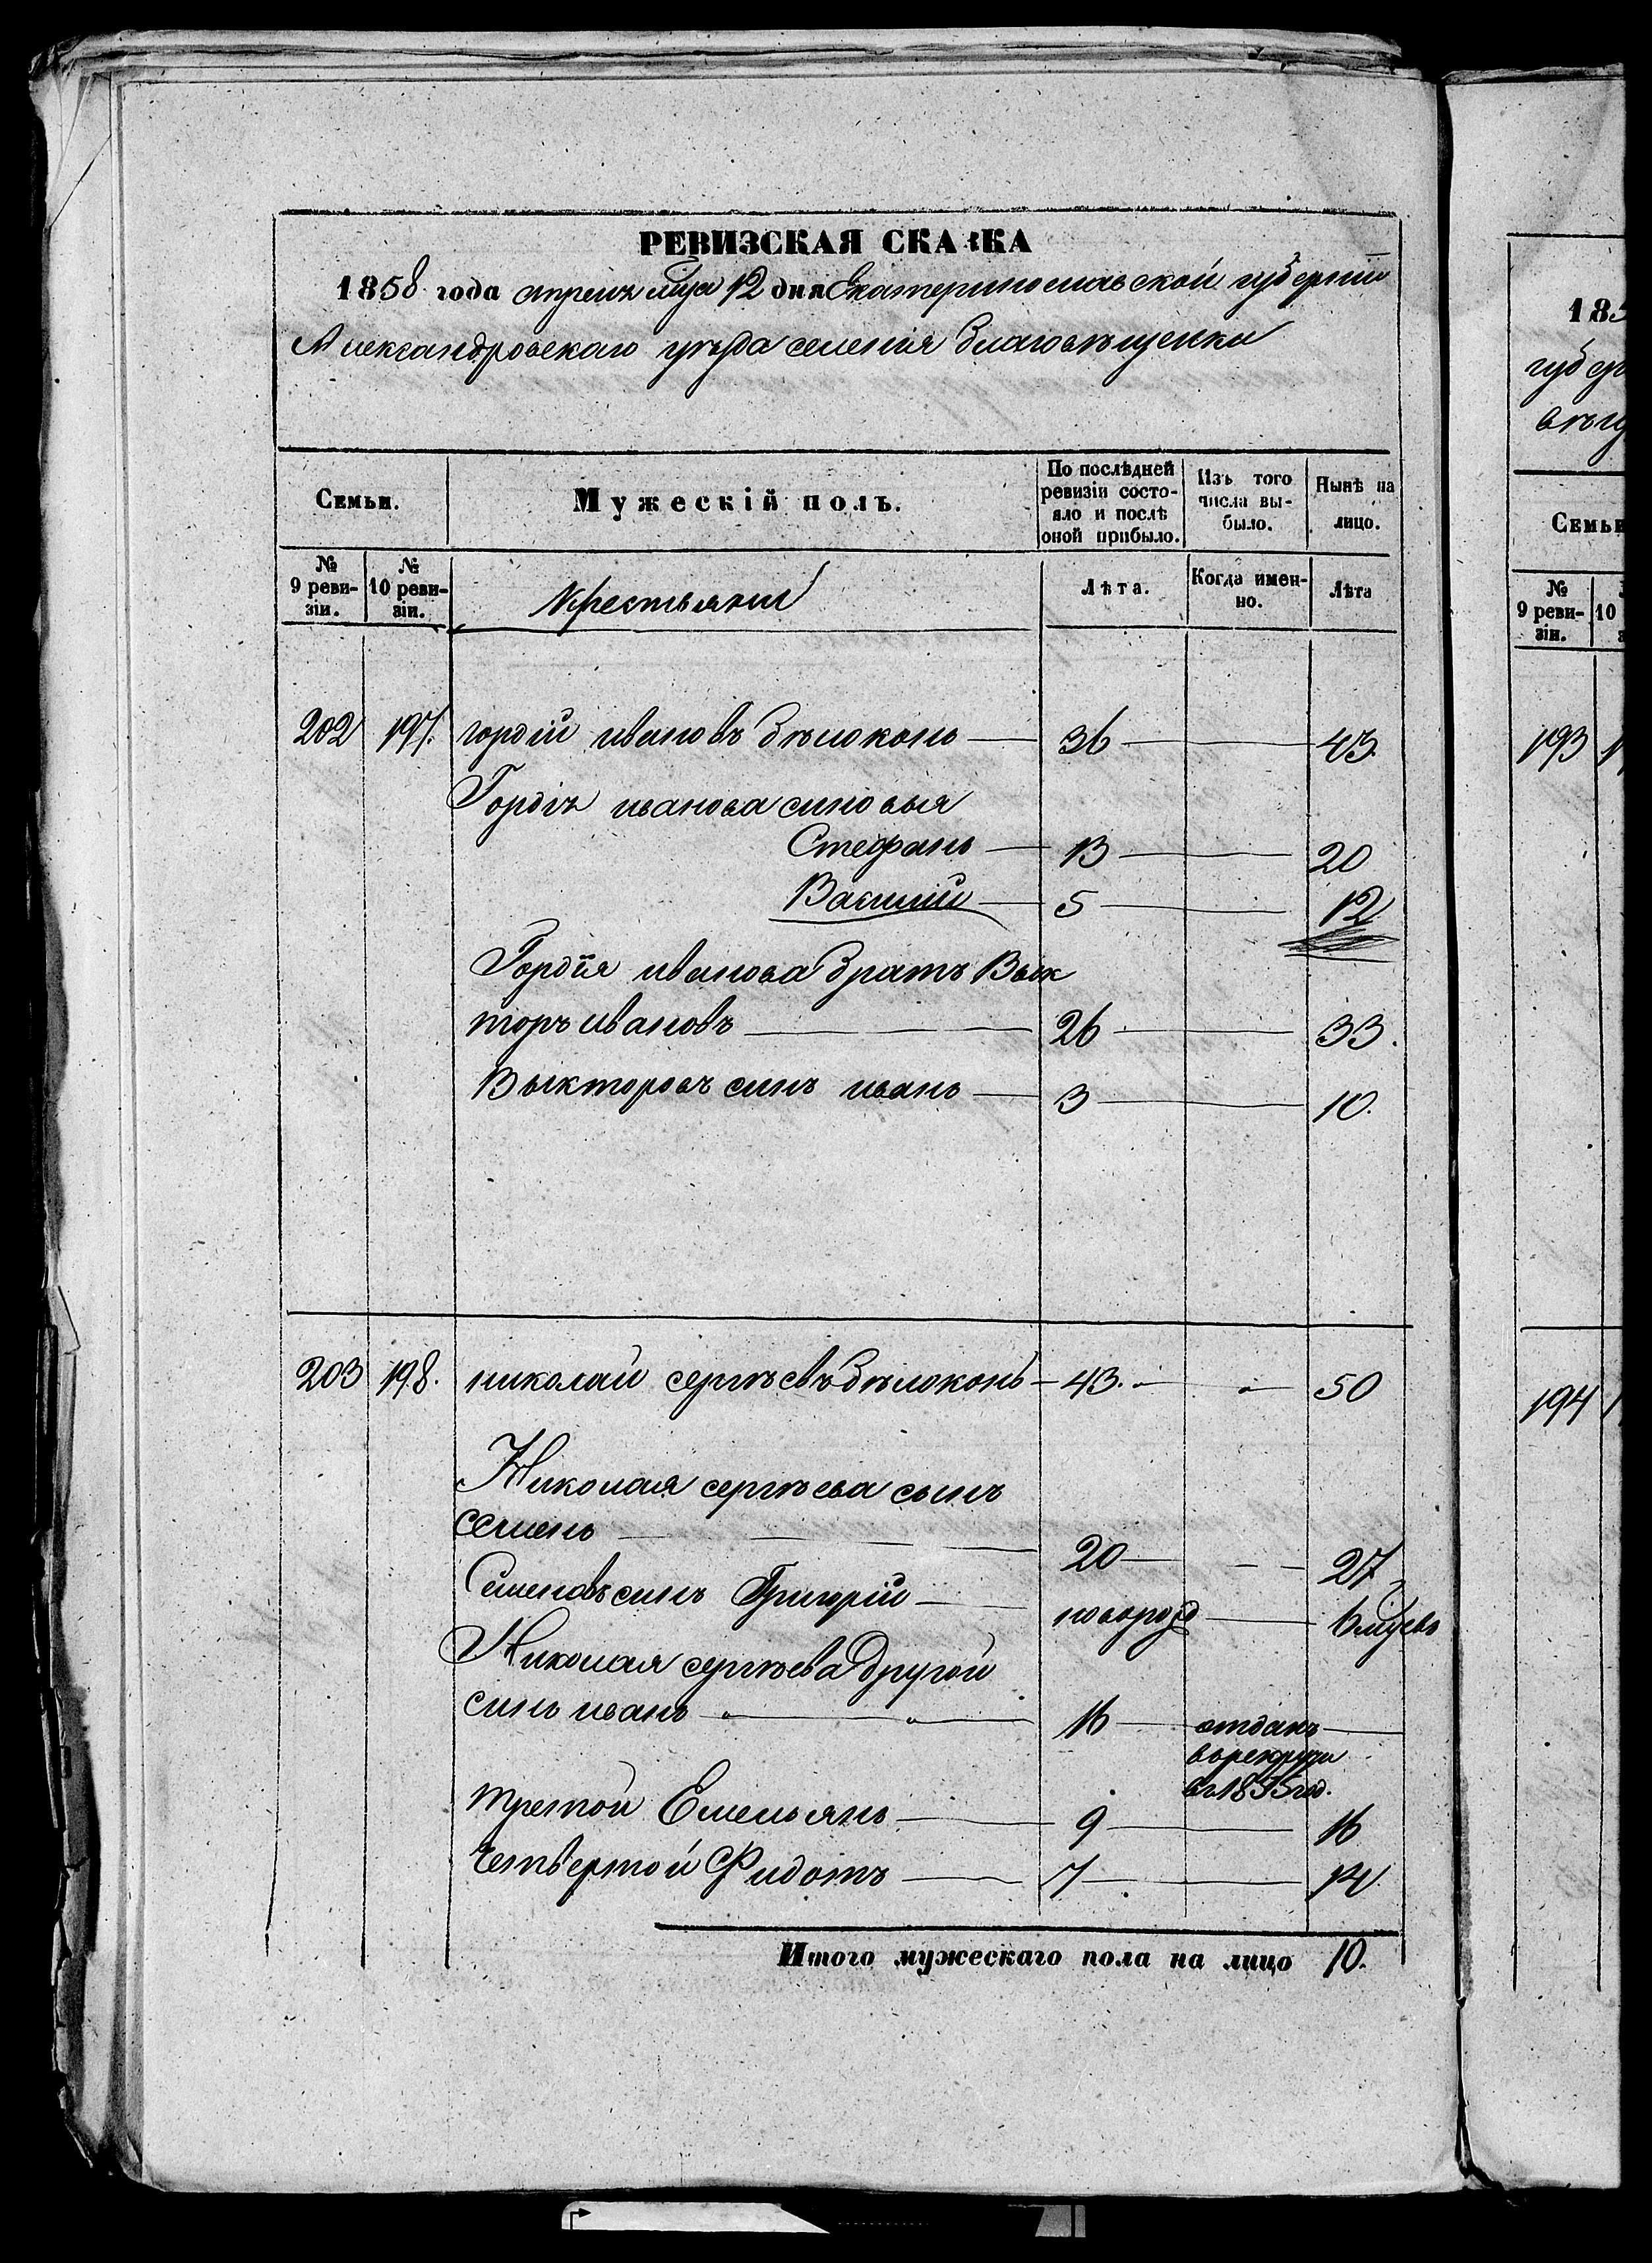 РЕВИЗСКАЯ СКАЗКА
1858 года апреля мца 12 дня Екатеринославской губернии
Александровскаго уезда селения благовещенки
Семьи.
Мужескій полъ.
По послѣдней ревизіи состо-
яло и послѣ
оной прибыло.
Изъ того
числа вы-
было.
Нынѣ на
лицо.
№
9 реви-
зіи.
№
10 реви-
зіи.
Крестьяни
Лѣта.
Когда имен-
но.
Лѣта
202 197. гордій ивановъ бѣлоконь 36 43
Гордія иванова синовья
Стефанъ 13 20
Василий 5 12
Гордія иванова братъ Вык
торъ ивановъ 26 33.
Выкторовъ синъ иванъ 3 10.
203 198. николай сергѣевъ бѣлоконь 43. 50
Николая сергѣева сынъ
семенъ 20 27
Семеновъ синъ Григорій новорожд 6 мцевъ
Николая сергѣева другой
синъ иванъ 16 отданъ
в рекруты
въ 1855 год.
третой Емельянъ 9 16
Четвертой Фидотъ 7 14
Итого мужескаго пола на лицо 10.
185
губер
вѣщ
Семьи
№
9 реви-
зіи.
10
193
194